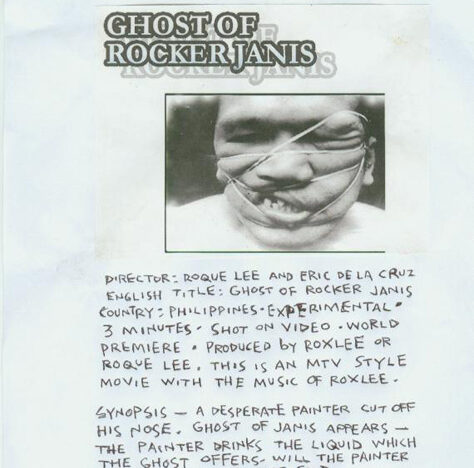 GHOST OF
ROCKER JANIS
DIRECTOR: ROQUE LEE AND ERIC DE LA CRUZ
ENGLISH TITLE: GHOST OF ROCKER JANIS
COUNTRY: PHILIPPINES. EXPERIMENTAL.
3 MINUTES. SHOT ON VIDEO. WORLD
PREMIERE. PRODUCED by ROXLEE OR
ROQUE LEE. THIS IS AN MTV STYLE
MOVIE WITH THE MUSIC OF ROXLEE.
SYNOPSIS — A DESPERATE PAINTER CUT OFF
HIS NOSE. GHOST OF JANIS APPEARS —
THE PAINTER DRINKS THE LIQUID WHICH
THE GHOST OFFERS. WILL THE PAINTER